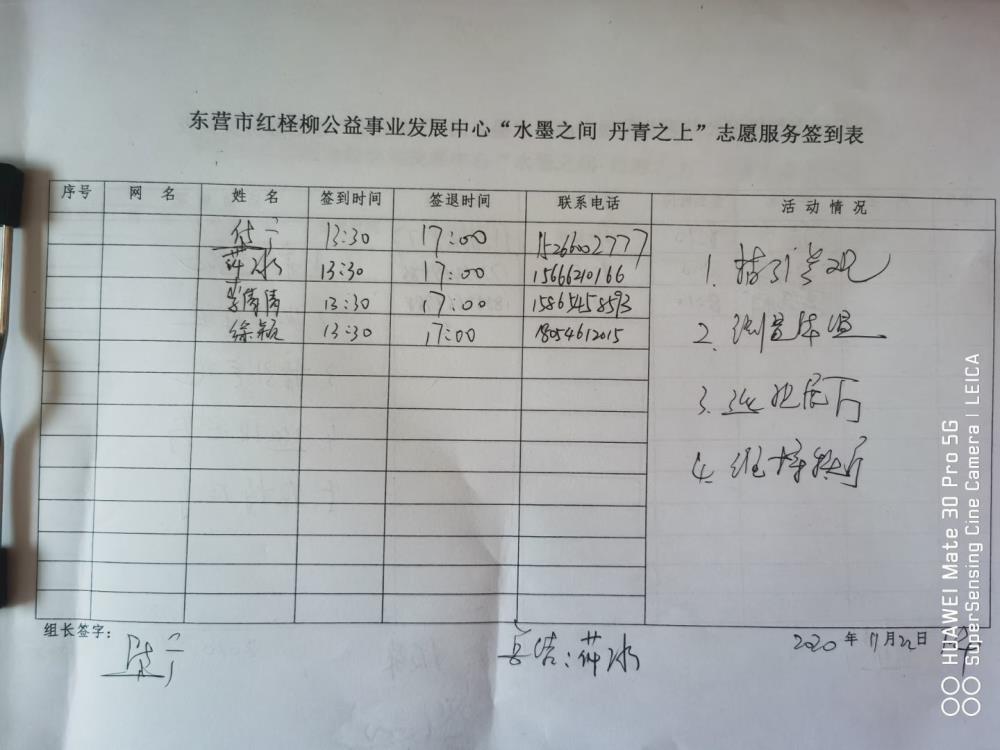 东营市红柽柳公益事业发展中心“水墨之间 丹青之上”志愿服务签到表
序号 网 名 姓 名 签到时间 签退时间 联系电话 活动情况
13:30 17:00 15266002777
13:30 17:00 15666210166
李倩倩 13:30 17:00 15865458593
徐颖 13:30 17:00 18054612015
1. 指引参观
2. 测量体温
3.
4. 维持秩序
组长签字：
2020 年 11月22日
HUAWEI Mate 30 Pro 5G
SuperSensing Cine Camera | LEICA